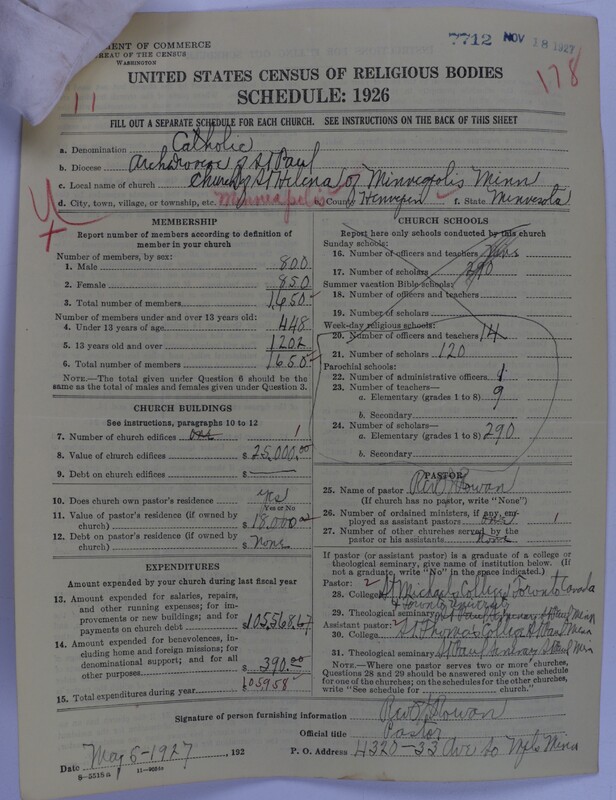 MENT OF COMMERCE
BUREAU OF THE CENSUS
WASHINGTON
7712 NOV 18 1927
178
11
UNITED STATES CENSUS OF RELIGIOUS BODIES
SCHEDULE: 1926
FILL OUT A SEPARATE SCHEDULE FOR EACH CHURCH. SEE INSTRUCTIONS ON THE BACK OF THIS SHEET
a. Denomination Catholic
b. Diocese Archdiocese of St Paul
c. Local name of church Church of St Helena of Minneapolis Minn
d. City, town, village, or township, etc. Minneapolis e. County Hennepin f. State Minnesota
MEMBERSHIP
Report number of members according to definition of member in your church
Number of members, by sex:
1. Male 800
2. Female 850
3. Total number of members 1650
Number of members under and over 13 years old:
4. Under 13 years of age 448
5. 13 years old and over 1202
6. Total number of members 1650
NOTE.—The total given under Question 6 should be the same as the total of males and females given under Question 3.
CHURCH BUILDINGS
See instructions, paragraphs 10 to 12
7. Number of church edifices one 1
8. Value of church edifices $ 25,000.00
9. Debt on church edifices $
10. Does church own pastor's residence yes
(Yes or No)
11. Value of pastor's residence (if owned by church) $ 18,000
12. Debt on pastor's residence (if owned by church) $ None
EXPENDITURES
Amount expended by your church during last fiscal year
13. Amount expended for salaries, repairs, and other running expenses; for improvements or new buildings; and for payments on church debt $ 105,568.67
14. Amount expended for benevolences, including home and foreign missions; for denominational support; and for all other purposes $ 390.00
15. Total expenditures during year $ 105958
CHURCH SCHOOLS
Report here only schools conducted by this church
Sunday schools:
16. Number of officers and teachers
17. Number of scholars
Summer vacation Bible schools:
18. Number of officers and teachers
19. Number of scholars
Week-day religious schools:
20. Number of officers and teachers 14
21. Number of scholars 120
Parochial schools:
22. Number of administrative officers 1
23. Number of teachers—
a. Elementary (grades 1 to 8) 9
b. Secondary
24. Number of scholars—
a. Elementary (grades 1 to 8) 290
b. Secondary
PASTOR
25. Name of pastor Rev Rowan
(If church has no pastor, write "None")
26. Number of ordained ministers, if any, employed as assistant pastors one 1
27. Number of other churches served by the pastor or his assistants None
If pastor (or assistant pastor) is a graduate of a college or theological seminary, give name of institution below. (If not a graduate, write "No" in the place indicated.)
Pastor:
28. College St Michaels College Toronto Canada
& Toronto University
29. Theological seminary St Paul Seminary St Paul Minn
Assistant pastor:
30. College St Thomas College St Paul Minn
31. Theological seminary St Paul Seminary St Paul Minn
NOTE.—Where one pastor serves two or more churches, Questions 28 and 29 should be answered only on the schedule for one of the churches; on the schedules for the other churches, write "See schedule for church."
Signature of person furnishing information Rev Rowan
Official title Pastor
Date May 6-1927, 192 P. O. Address 4320-33 Ave So Mpls Minn
8-5518a